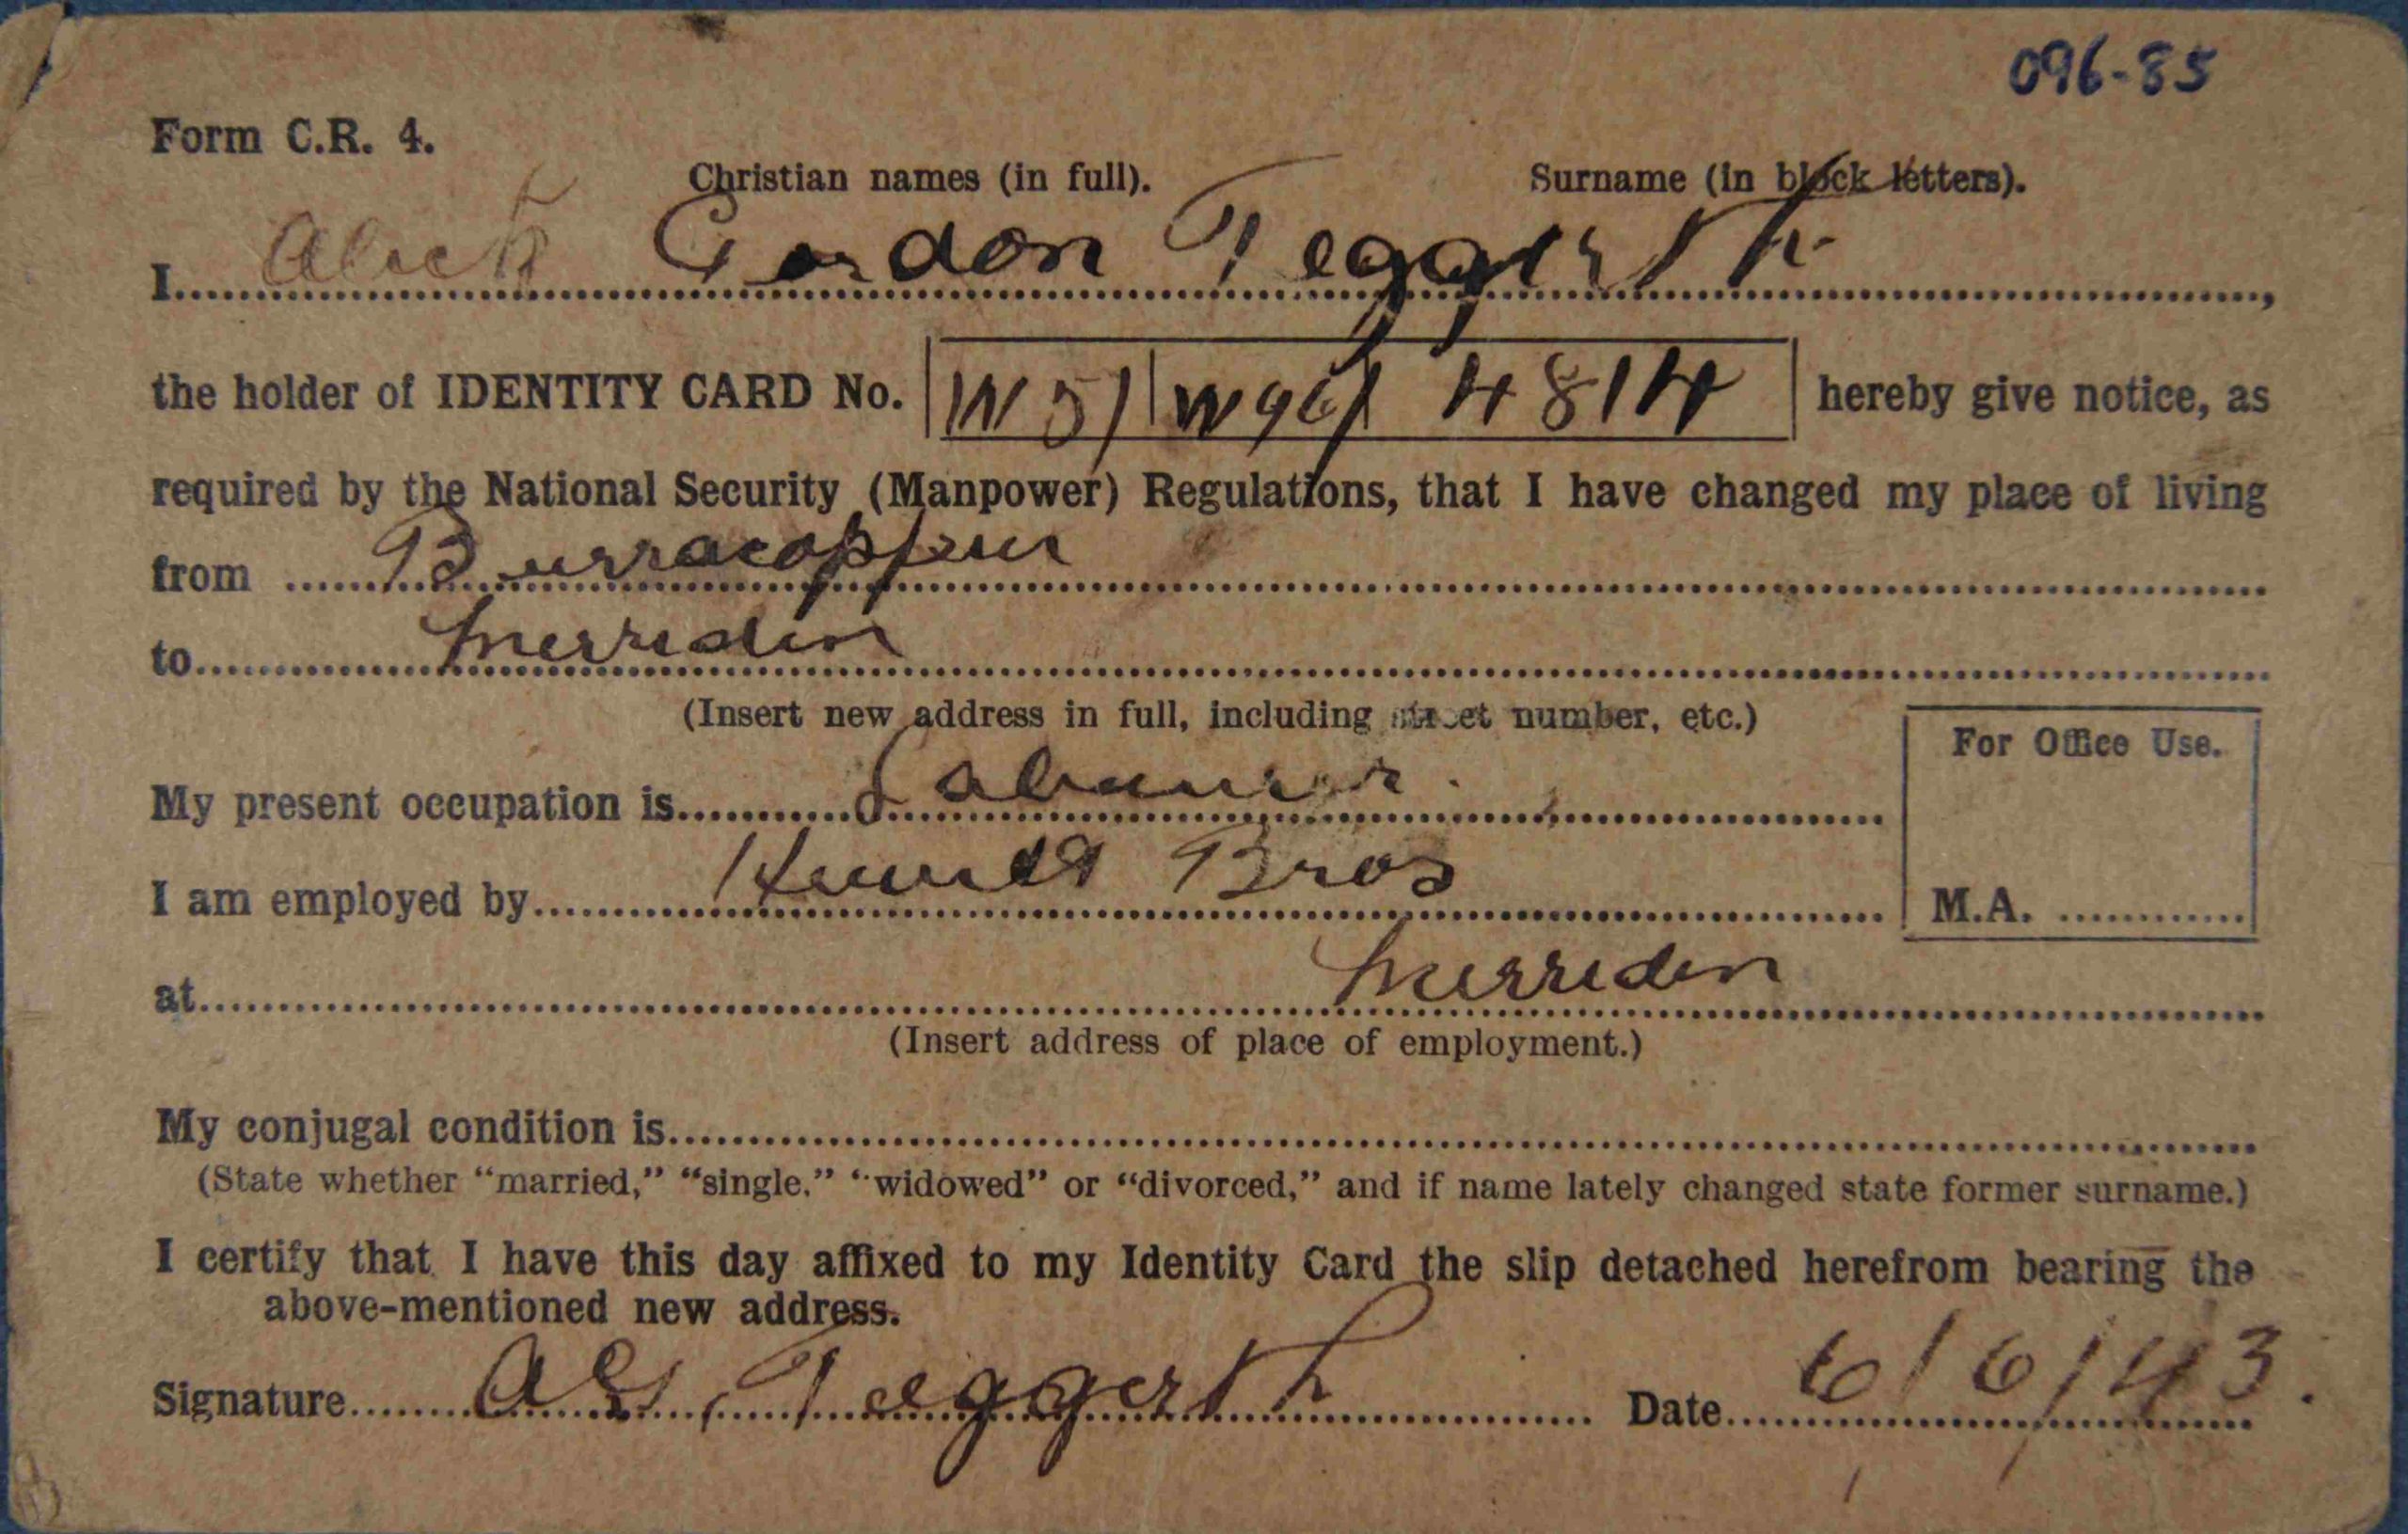 096-85
Form C.R. 4.
Christian names (in full). Surname (in block letters).
I Aleck Gordon Teggerth,
the holder of IDENTITY CARD No. W51 W96 4814 hereby give notice, as
required by the National Security (Manpower) Regulations, that I have changed my place of living
from Burracoppin
to Merredin
(Insert new address in full, including street number, etc.)
For Office Use.
My present occupation is Labourer.
I am employed by Bros
M.A.
at Merreden
(Insert address of place of employment.)
My conjugal condition is
(State whether “married,” “single,” “widowed” or “divorced,” and if name lately changed state former surname.)
I certify that I have this day affixed to my Identity Card the slip detached herefrom bearing the
above-mentioned new address.
Signature A G. Teggerth Date 6/6/43.